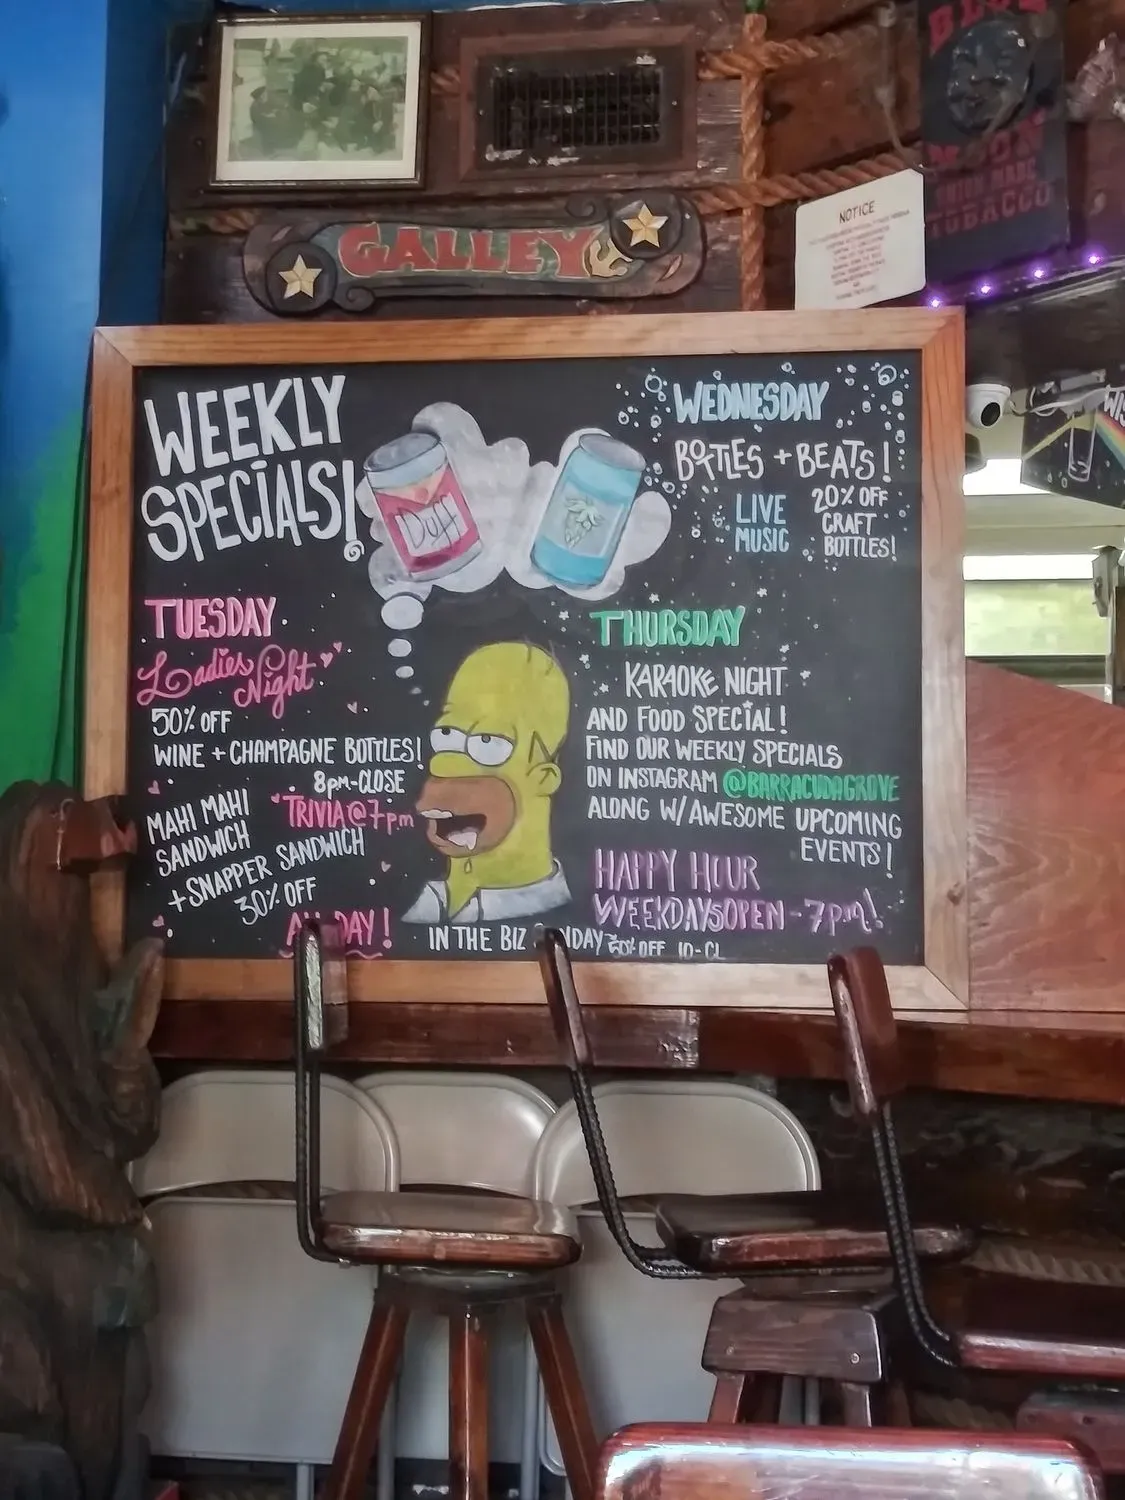 GALLEY
NOTICE
BLUE
MOON
UNION MADE
TOBACCO
WEEKLY
SPECIALS!
Duff
WEDNESDAY
BOTTLES + BEATS!
LIVE
MUSIC
20% OFF
CRAFT
BOTTLES!
TUESDAY
Ladies
Night
50% OFF
WINE + CHAMPAGNE BOTTLES!
8pm-CLOSE
TRIVIA@7pm
MAHI MAHI
SANDWICH
+ SNAPPER SANDWICH
30% OFF
ALL DAY!
THURSDAY
KARAOKE NIGHT
AND FOOD SPECIAL!
FIND OUR WEEKLY SPECIALS
ON INSTAGRAM @BARRACUDAGROVE
ALONG W/ AWESOME UPCOMING
EVENTS!
HAPPY HOUR
WEEKDAYS OPEN - 7pm!
IN THE BIZ 50% OFF 10-CL